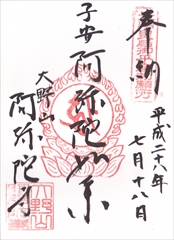 奉納
平成二十八年
七月十八日
子安阿弥陀如来
大野山
阿弥陀寺